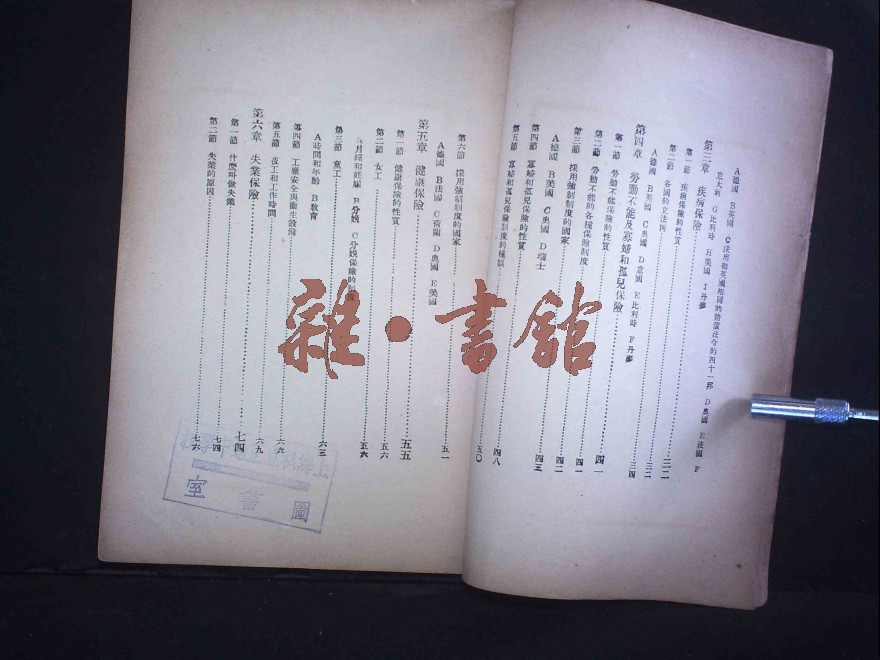 A德國 B英國 C採用和英國相同的賠償法令的四十一邦 D奧國 E法國 F
意大利 G比利時 H美國 I丹麥
第三章 疾病保險
第一節 疾病保險的性質……三二
第二節 各國的立法例……三二
A德國 B英國 C奧國 D意國 E比利時 F丹麥
第四章 勞動不能及寡婦和孤兒保險……三四
第一節 勞動不能保險的性質……四一
第二節 勞動不能的各種保險制度……四一
第三節 採用強制制度的國家……四二
A德國 B英國 C奧國 D瑞士
第四節 寡婦和孤兒保險的性質……四五
第五節 寡婦和孤兒保險制度的種類……四八
第六節 採用強制制度的國家……五〇
A德國 B法國 C荷蘭 D奧國 E美國……五一
第五章 健康保險……五五
第一節 健康保險的性質……五五
第二節 女工……五六
A月經和妊娠 B分娩 C分娩保險的制度
第三節 童工……五六
A時間和年齡 B教育……六三
第四節 工廠安全與衛生設備……六六
第五節 夜工和工作時間……六九
第六章 失業保險……七四
第一節 什麼叫做失業……七四
第二節 失業的原因……七六
圖書室
雜·書館